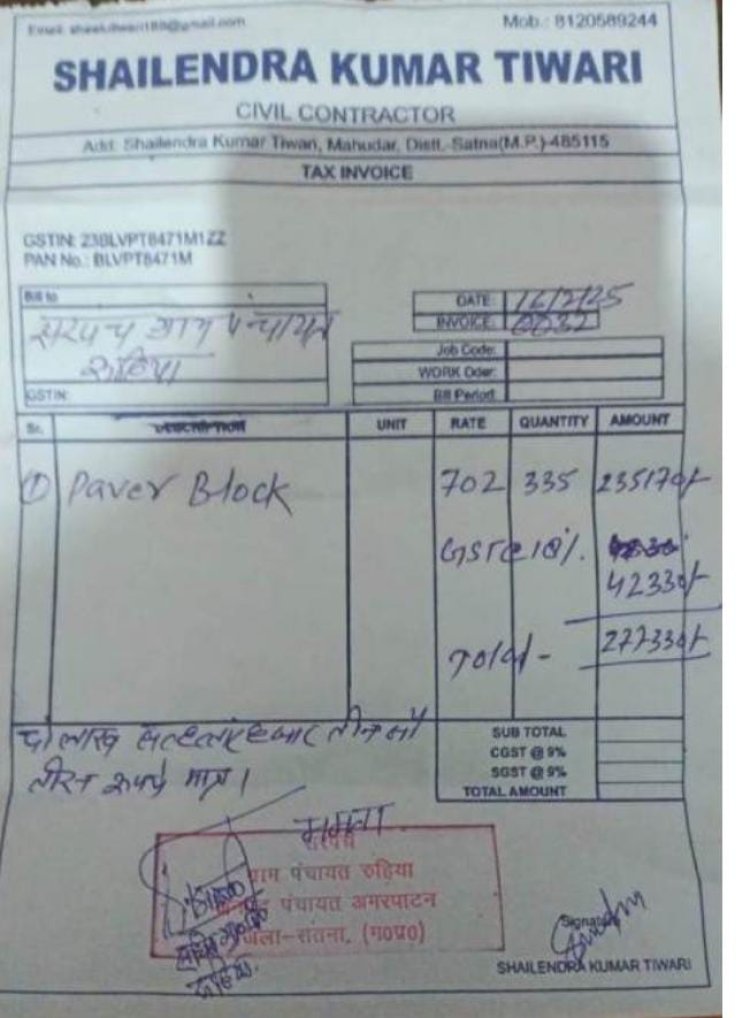 Mob.: 8120589244
SHAILENDRA KUMAR TIWARI
CIVIL CONTRACTOR
Add: Shailendra Kumar Tiwari, Mahudar, Distt.-Satna(M.P.)-485115
TAX INVOICE
GSTIN: 23BLVPT8471M1ZZ
PAN No.: BLVPT8471M
Bill to
DATE: 16/2/25
INVOICE: 0032
सरपंच ग्राम पंचायत
Job Code:
WORK Oder:
GSTIN:
Bill Period:
Sr. DESCRIPTION UNIT RATE QUANTITY AMOUNT
① Paver Block 702 335 235170/-
GST@18%.
42330/-
Total - 277330/-
SUB TOTAL
दो लाख सतहत्तर हजार तीन सौ
CGST @ 9%
तीस रूपये मात्र।
SGST @ 9%
TOTAL AMOUNT
सरपंच
ग्राम पंचायत रुहिया
पंचायत अमरपाटन
जिला-सतना, (म0प्र0)
Signature
SHAILENDRA KUMAR TIWARI